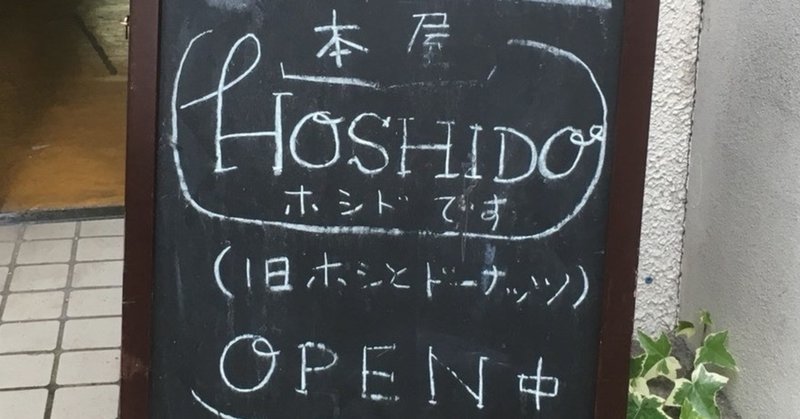 本屋
HOSHIDO
ホシドです
(旧ホシとドーナッツ)
OPEN中